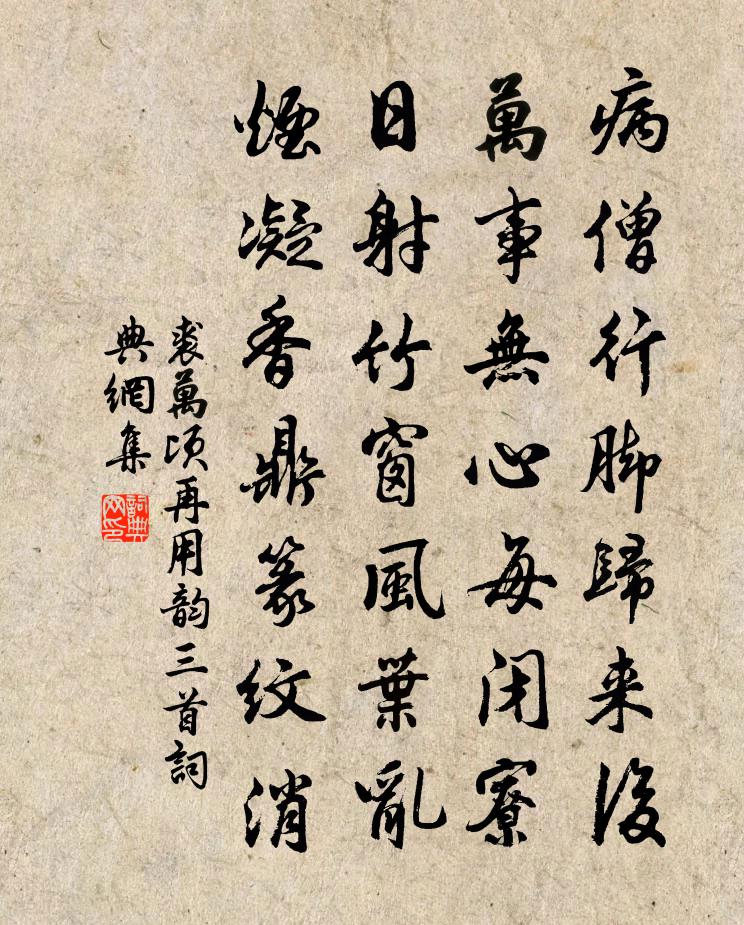 病僧行脚歸来後
萬事無心每闭寮
日射竹窗風葉亂
煙凝香鼎篆紋消
裘萬頃再用韵三首詞
典網集
詞典
网印